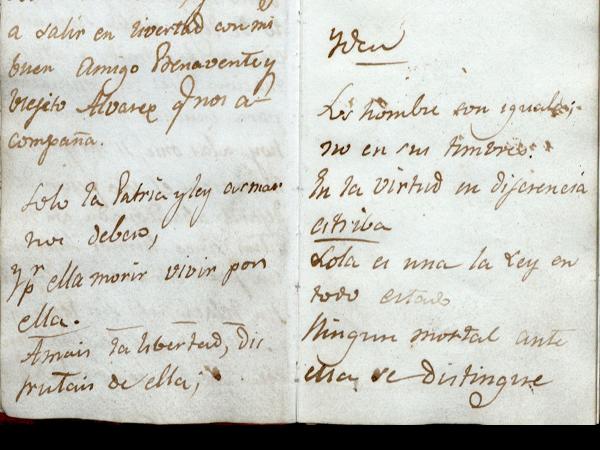 a salir en livertad con mi
buen Amigo Benavente y
biejito Alvarez q nos a-
compaña.
Solo la Patria y ley armar
nos debero,
y pr ella morir vivir por
ella.
Amais la libertad, Dis
frutais de ella;
Yden
Los hombre son iguales,
no en sus timbres.
En la virtud su diferencia
estriba
Sola es una la Ley en
todo estado
Ningun mortal ante
ella se distingue